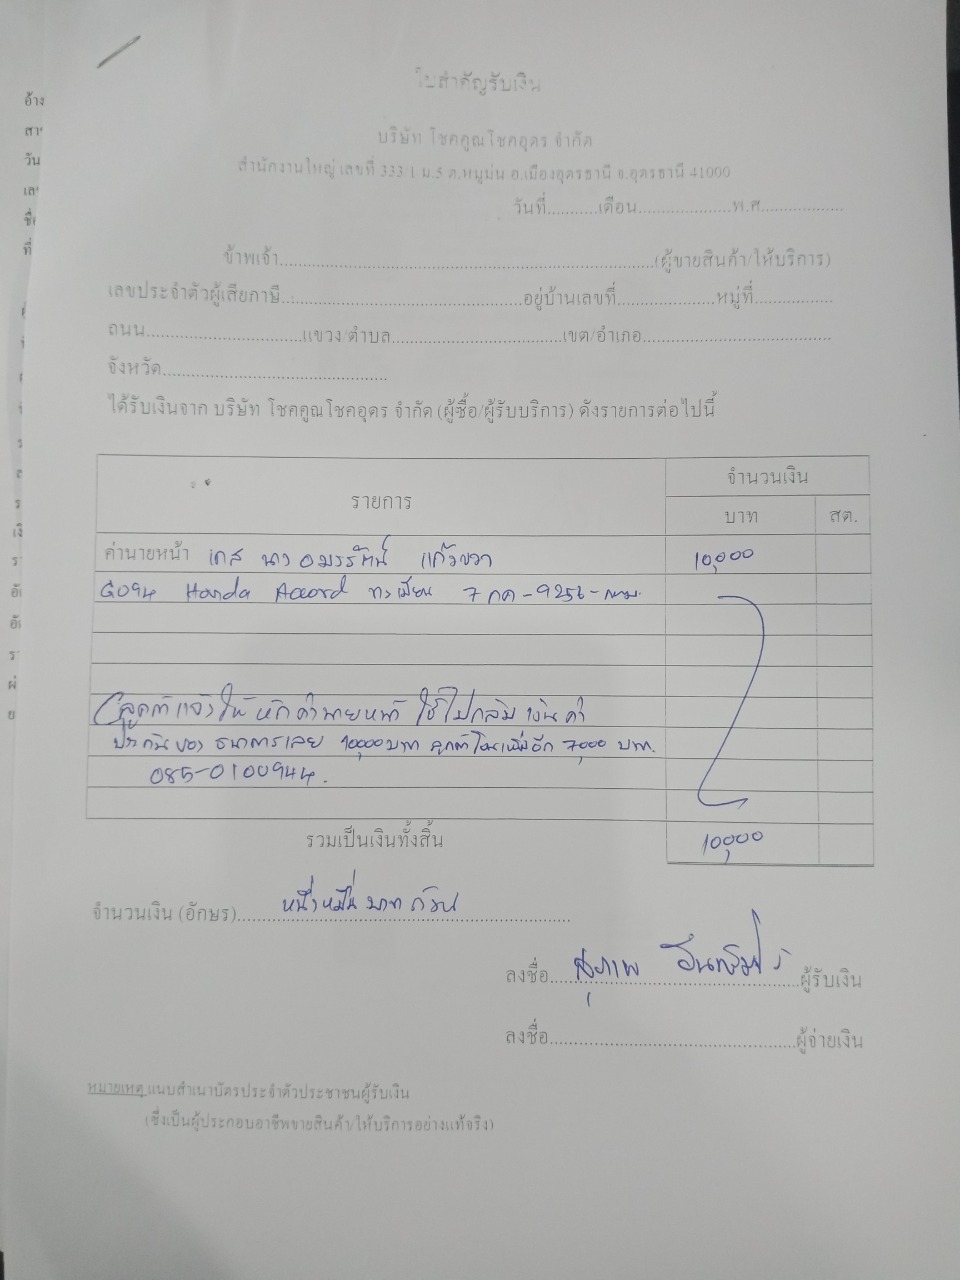 ใบสำคัญรับเงิน
บริษัท โชคคูณโชคอุดร จำกัด
สำนักงานใหญ่ เลขที่ 333/1 ม.5 ต.หมูม่น อ.เมืองอุดรธานี จ.อุดรธานี 41000
วันที่...........เดือน....................พ.ศ..................
ข้าพเจ้า................................................................................(ผู้ขายสินค้า/ให้บริการ)
เลขประจำตัวผู้เสียภาษี...................................................อยู่บ้านเลขที่.....................หมู่ที่.................
ถนน.................................แขวง/ตำบล....................................เขต/อำเภอ........................................
จังหวัด................................................
ได้รับเงินจาก บริษัท โชคคูณโชคอุดร จำกัด (ผู้ซื้อ/ผู้รับบริการ) ดังรายการต่อไปนี้
รายการ จำนวนเงิน
บาท สต.
ค่านายหน้า เคส นาง อมรรัตน์ แก้วขวา 10,000
G094 Honda Accord ทะเบียน 7 กค-9256-กทม.
(ลูกค้าแจ้งให้หักค่านายหน้า ใช้ไปกลับ เงินค่า
ประกันของ ธนาคารเลย 10,000 บาท ลูกค้าโอนเพิ่มอีก 7,000 บาท.
085-0100944.
รวมเป็นเงินทั้งสิ้น 10,000
จำนวนเงิน (อักษร) หนึ่งหมื่นบาทถ้วน
ลงชื่อ สุภาพ ผู้รับเงิน
ลงชื่อ..................................................ผู้จ่ายเงิน
หมายเหตุ แนบสำเนาบัตรประจำตัวประชาชนผู้รับเงิน
(ซึ่งเป็นผู้ประกอบอาชีพขายสินค้า/ให้บริการอย่างแท้จริง)